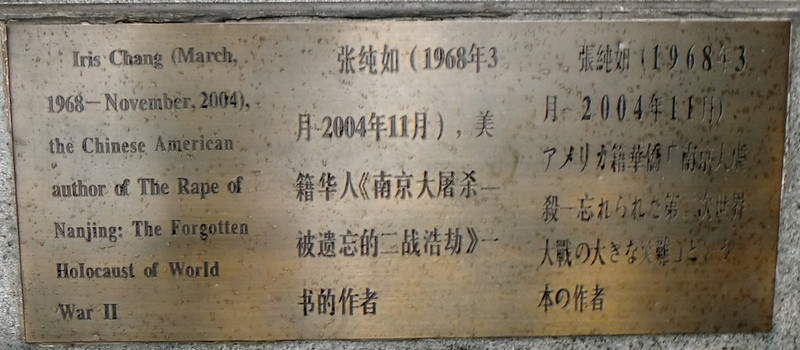 Iris Chang (March,
1968—November, 2004),
the Chinese American
author of The Rape of
Nanjing: The Forgotten
Holocaust of World
War II
张纯如（1968年3
月-2004年11月），美
籍华人《南京大屠杀—
被遗忘的二战浩劫》一
书的作者
張純如（1968年3
月-2004年11月）
アメリカ籍華僑「南京大虐
殺—忘れられた第二次世界
大戰の大きな災難」と
本の作者